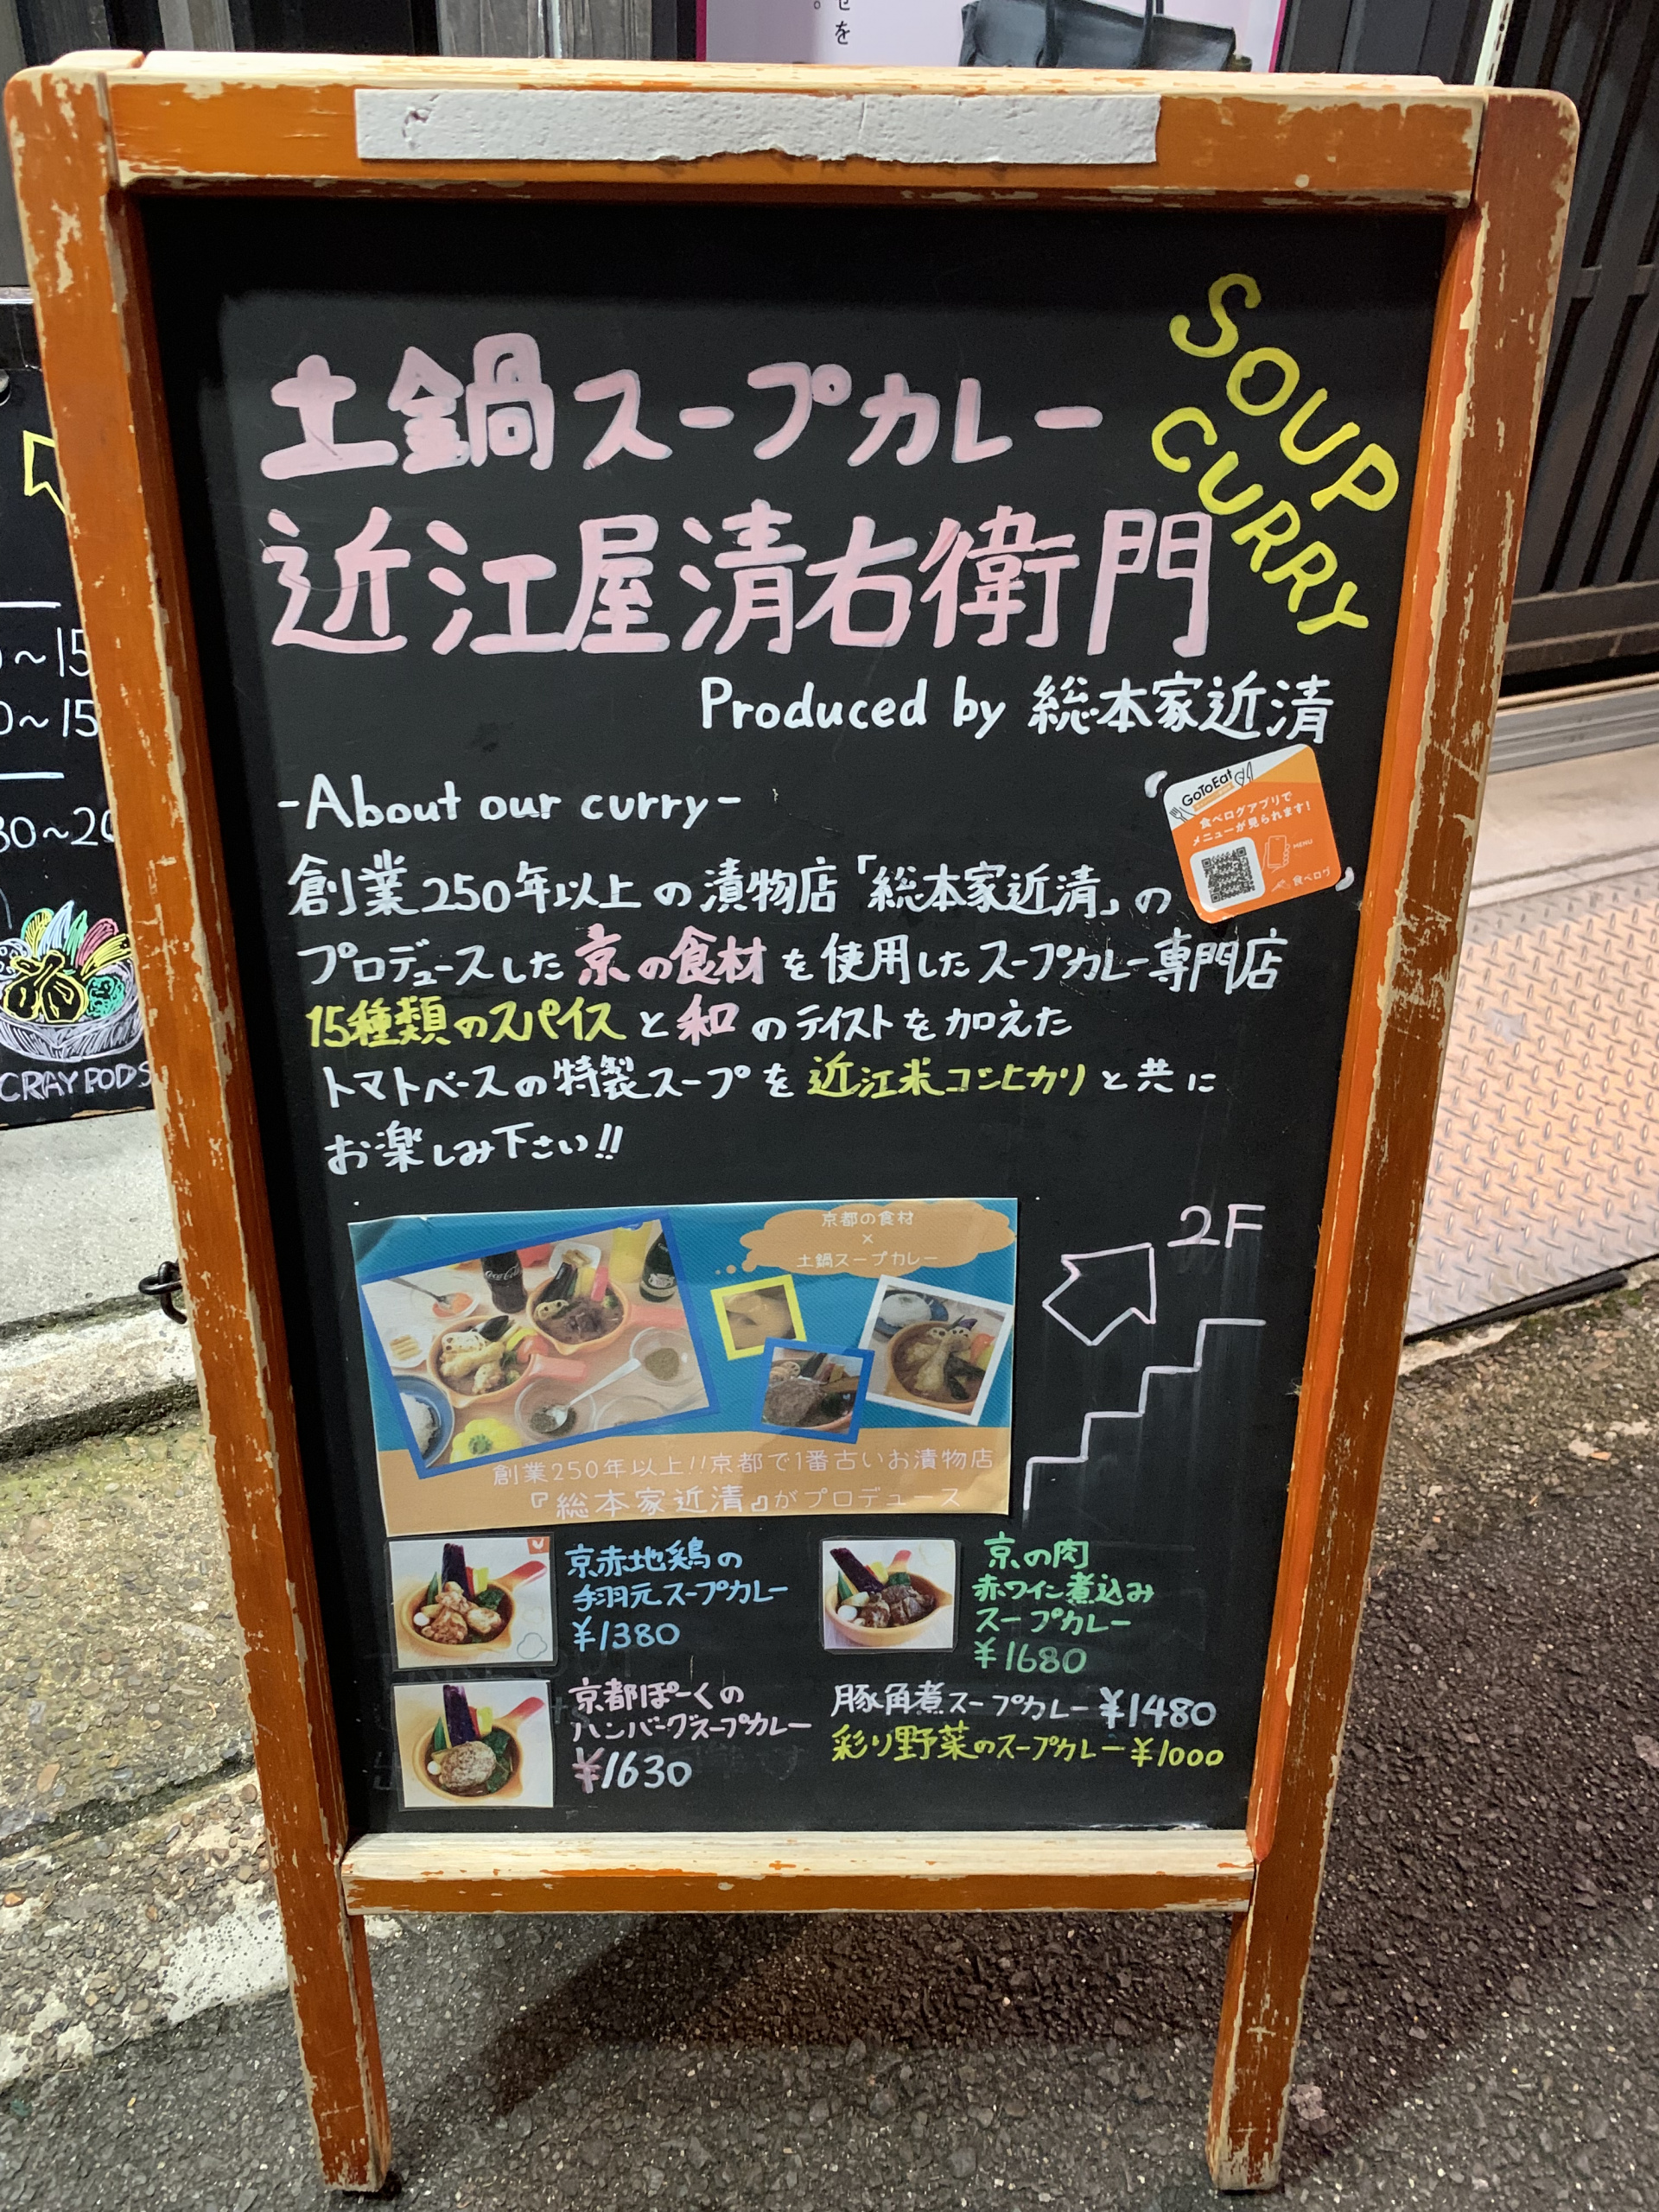 せを
SOUP
CURRY
土鍋スープカレー
近江屋清右衛門
Produced by 総本家近清
-About our curry-
GoToEat
食べログアプリで
メニューが見られます!
MENU
食べログ
創業250年以上の漬物店「総本家近清」の
プロデュースした京の食材を使用したスープカレー専門店
15種類のスパイスと和のテイストを加えた
トマトベースの特製スープを近江米コシヒカリと共に
お楽しみ下さい!!
京都の食材
×
土鍋スープカレー
創業250年以上!!京都で1番古いお漬物店
『総本家近清』がプロデュース
2F
京赤地鶏の
手羽元スープカレー
¥1380
京の肉
赤ワイン煮込み
スープカレー
¥1680
京都ぽーくの
ハンバーグスープカレー
¥1630
豚角煮スープカレー ¥1480
彩り野菜のスープカレー ¥1000
~15
0~15
30~20
CRAY PODS